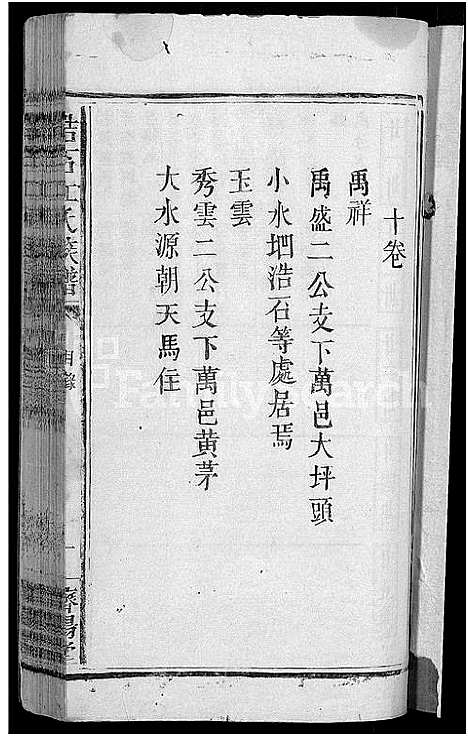 十卷
禹祥
禹盛二公支下萬邑大坪頭
小水垇浩石等處居焉
玉雲
秀雲二公支下萬邑黄茅
大水源朝天馬住
氏族譜
目錄
濟陽堂